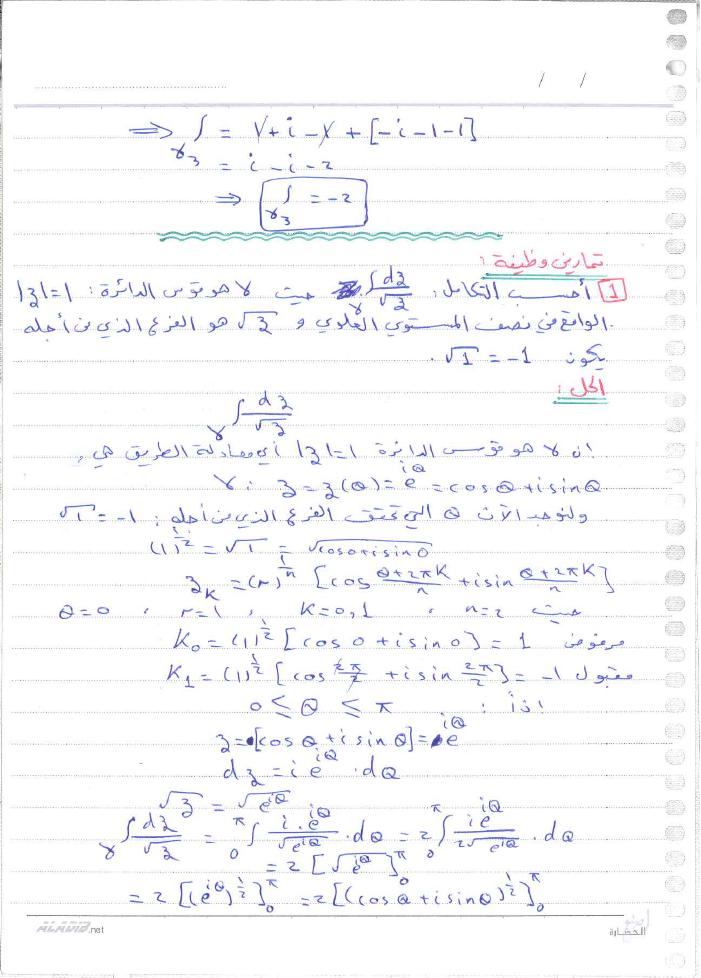 / /
⟹ ∫γ₃ = 1 + i − 1 + [−i − 1 − 1]
= i − i − 2
⟹ ∫γ₃ = −2
تمارين وظيفة :
1 أحسب التكامل: ∫γ dz/√z حيث γ هو قوس الدائرة: |z|=1
الواقع في نصف المستوي العلوي و √z هو الفرع الذي من أجله
يكون √1 = −1 .
الحل :
∫γ dz/√z
إن γ هو قوس الدائرة |z|=1 أي معادلة الطريق هي
γ: z = z(θ) = e^{iθ} = cos θ + i sin θ
ولنوجد الآن θ التي تحقق الفرع الذي من أجله : √1 = −1
(1)^{1/2} = √1 = √(cos 0 + i sin 0)
z_K = (r)^{1/n} [cos (θ+2πK)/n + i sin (θ+2πK)/n]
حيث n=2 ، K=0,1 ، r=1 ، θ=0
K₀ = (1)^{1/2} [cos 0 + i sin 0] = 1 مرفوض
K₁ = (1)^{1/2} [cos 2π/2 + i sin 2π/2] = −1 مقبول
إذاً : 0 ≤ θ ≤ π
z = [cos θ + i sin θ] = e^{iθ}
dz = i e^{iθ} . dθ
√z = √(e^{iθ})
∫γ dz/√z = ∫₀^π i.e^{iθ}/√(e^{iθ}) . dθ = 2 ∫₀^π i e^{iθ}/2√(e^{iθ}) . dθ
= 2 [√(e^{iθ})]₀^π
= 2 [(e^{iθ})^{1/2}]₀^π = 2 [(cos θ + i sin θ)^{1/2}]₀^π
ALADIB.net
الحضارة